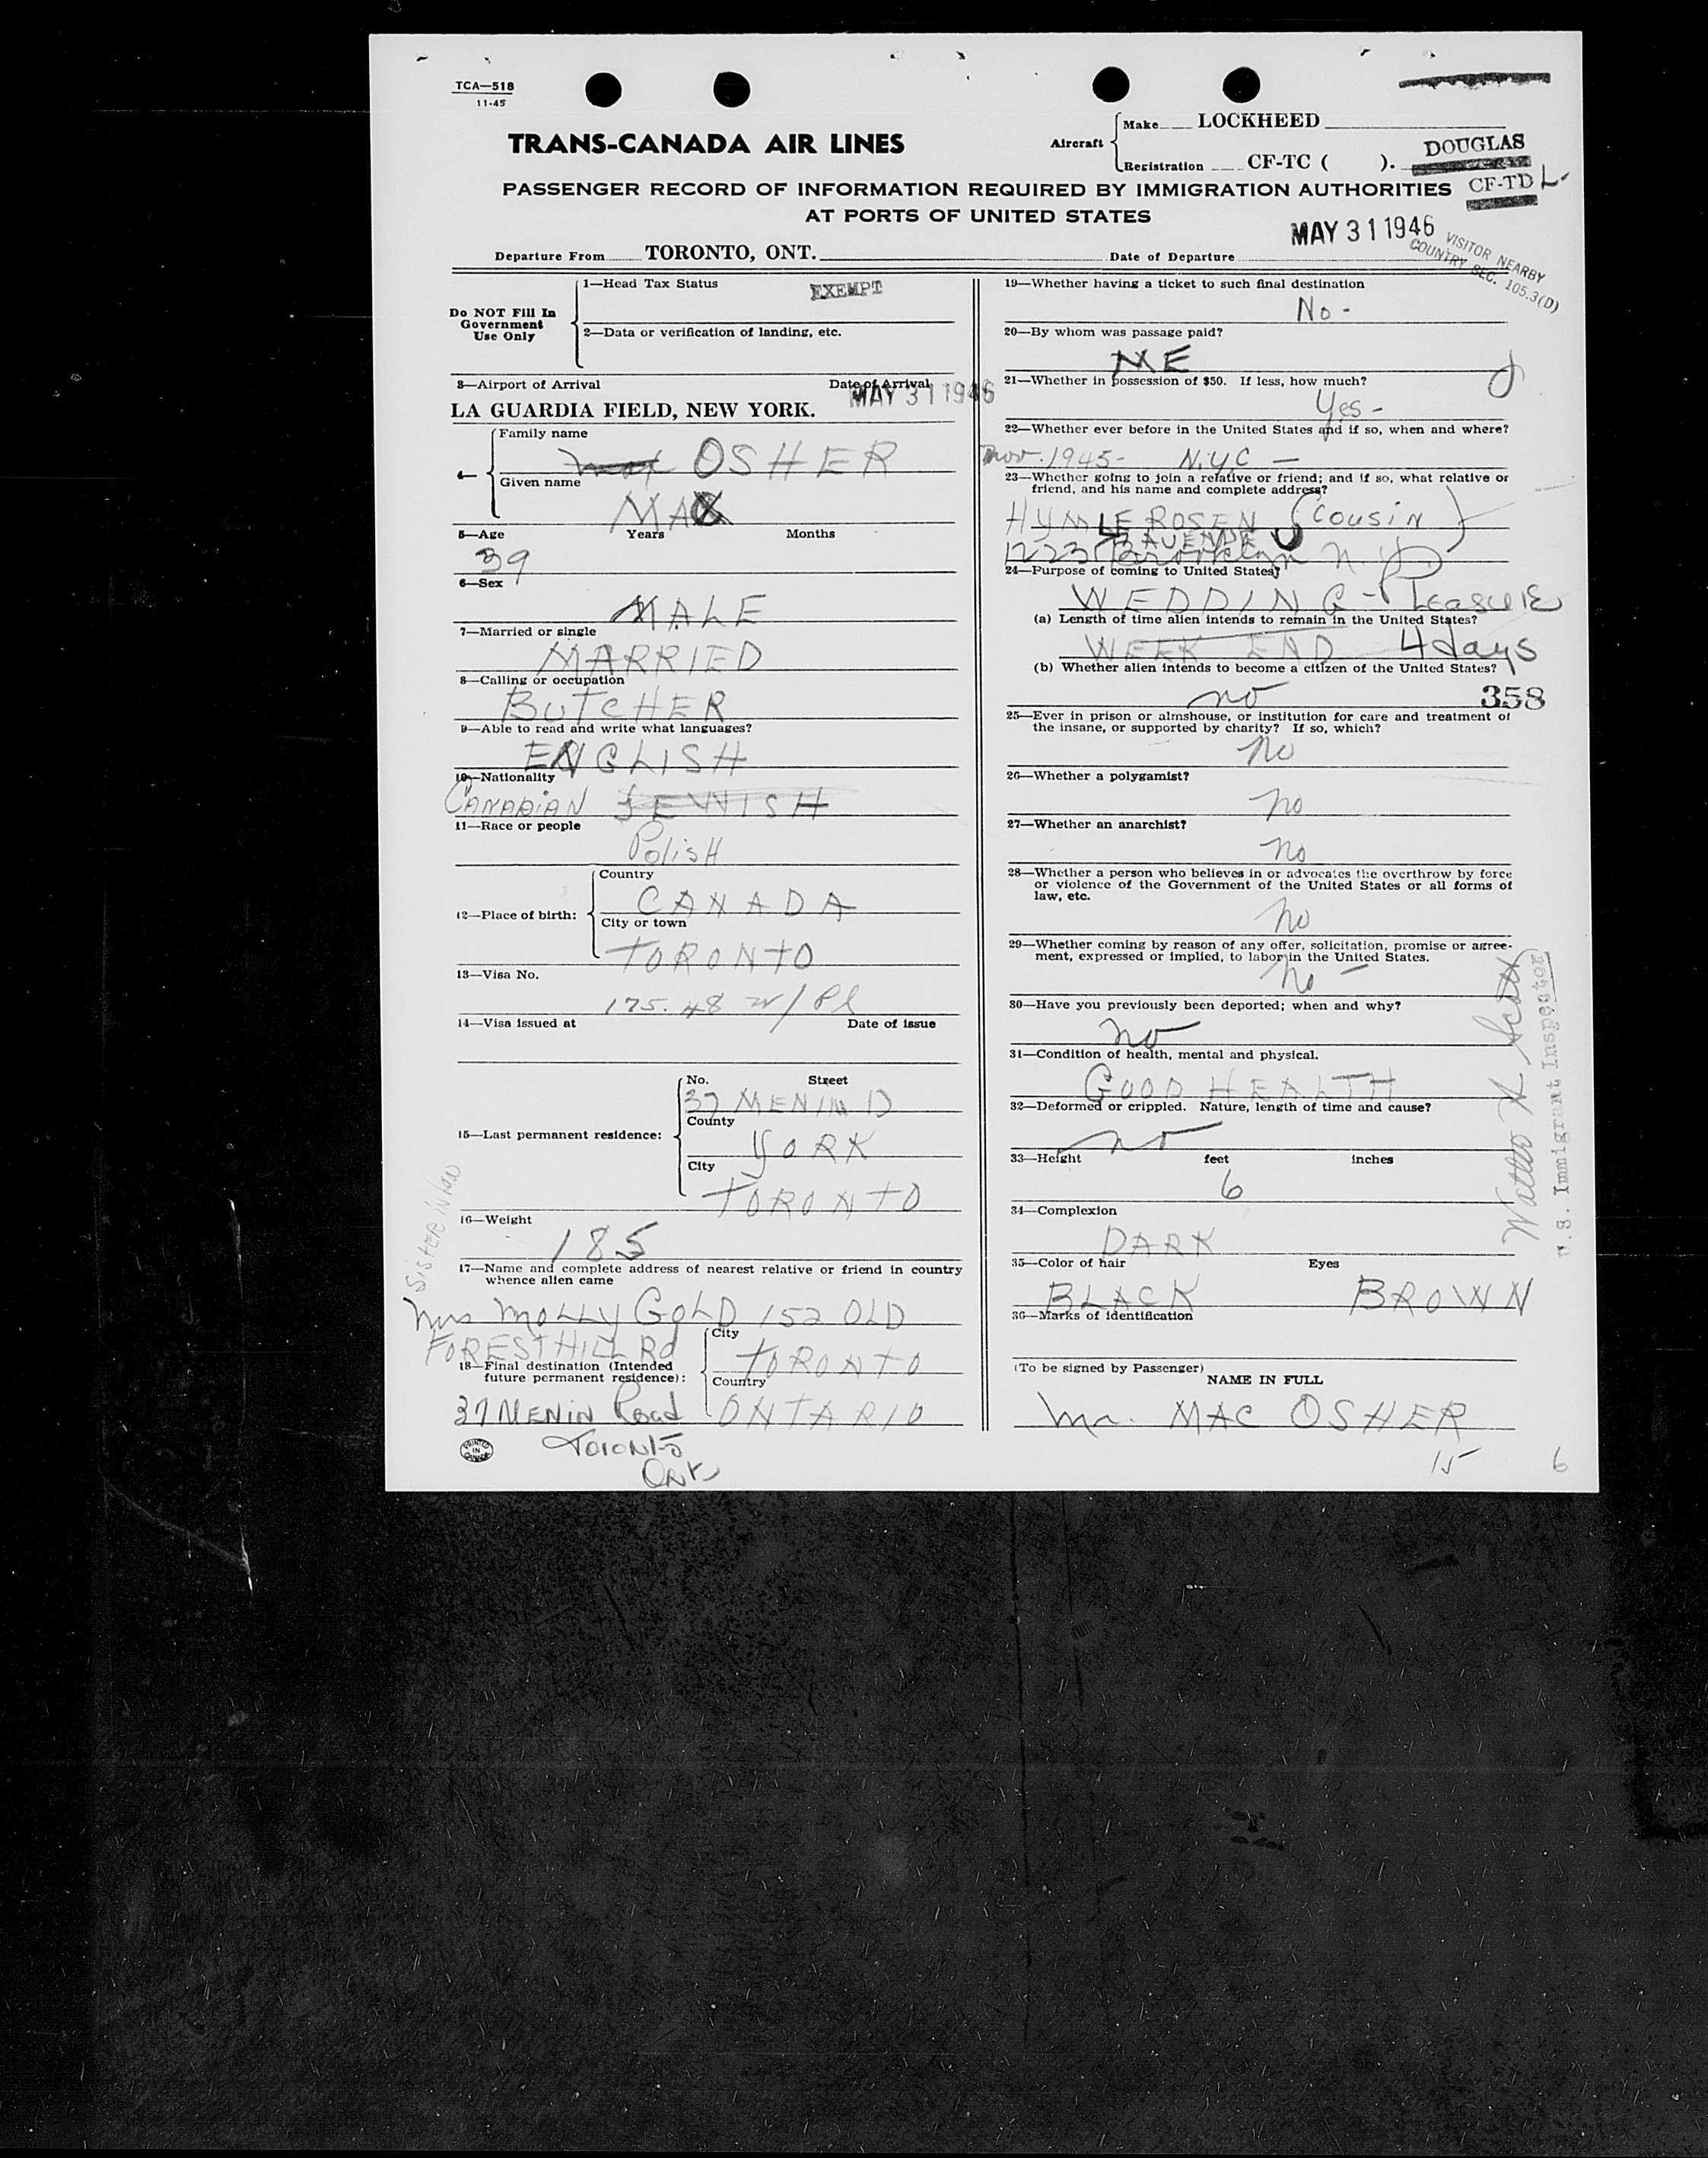 TCA—518
11-45
TRANS-CANADA AIR LINES
Aircraft
Make LOCKHEED
Registration CF-TC ( ).
DOUGLAS
CF-TD L-
PASSENGER RECORD OF INFORMATION REQUIRED BY IMMIGRATION AUTHORITIES
AT PORTS OF UNITED STATES
MAY 31 1946
VISITOR NEARBY
COUNTRY SEC. 105.3(D)
Departure From TORONTO, ONT. Date of Departure
Do NOT Fill In
Government
Use Only
1—Head Tax Status EXEMPT
2—Data or verification of landing, etc.
3—Airport of Arrival Date of Arrival
MAY 31 1946
LA GUARDIA FIELD, NEW YORK.
4—
Family name
OSHER
Given name
MAC
5—Age Years Months
39
6—Sex
MALE
7—Married or single
MARRIED
8—Calling or occupation
BUTCHER
9—Able to read and write what languages?
ENGLISH
10—Nationality
CANADIAN JEWISH
11—Race or people
Polish
12—Place of birth:
Country
CANADA
City or town
TORONTO
13—Visa No.
175.48 w/Pl
14—Visa issued at Date of issue
15—Last permanent residence:
No. Street
37 MENIN D
County
YORK
City
TORONTO
16—Weight
185
17—Name and complete address of nearest relative or friend in country
whence alien came
Sister in law
Mrs MOLLY GOLD 152 OLD
FOREST HILL Rd
18—Final destination (Intended
future permanent residence):
City
TORONTO
Country
ONTARIO
37 MENIN Road
Toronto
Ont
PRINTED
IN
CANADA
19—Whether having a ticket to such final destination
No -
20—By whom was passage paid?
ME
21—Whether in possession of $50. If less, how much?
Yes -
22—Whether ever before in the United States and if so, when and where?
Nov. 1945- N.Y.C —
23—Whether going to join a relative or friend; and if so, what relative or
friend, and his name and complete address?
HYMIE ROSEN (COUSIN)
AVENUE U
1223 Brooklyn N.Y.
24—Purpose of coming to United States?
WEDDING - Pleasure
(a) Length of time alien intends to remain in the United States?
WEEK END 4 days
(b) Whether alien intends to become a citizen of the United States?
no 358
25—Ever in prison or almshouse, or institution for care and treatment of
the insane, or supported by charity? If so, which?
No
26—Whether a polygamist?
no
27—Whether an anarchist?
no
28—Whether a person who believes in or advocates the overthrow by force
or violence of the Government of the United States or all forms of
law, etc.
no
29—Whether coming by reason of any offer, solicitation, promise or agree-
ment, expressed or implied, to labor in the United States.
no -
30—Have you previously been deported; when and why?
no
31—Condition of health, mental and physical.
GOOD HEALTH
32—Deformed or crippled. Nature, length of time and cause?
no
33—Height feet inches
6
34—Complexion
DARK
35—Color of hair Eyes
BLACK BROWN
36—Marks of identification
(To be signed by Passenger)
NAME IN FULL
Mr. MAC OSHER
15 6
Walter H Scott
U.S. Immigrant Inspector